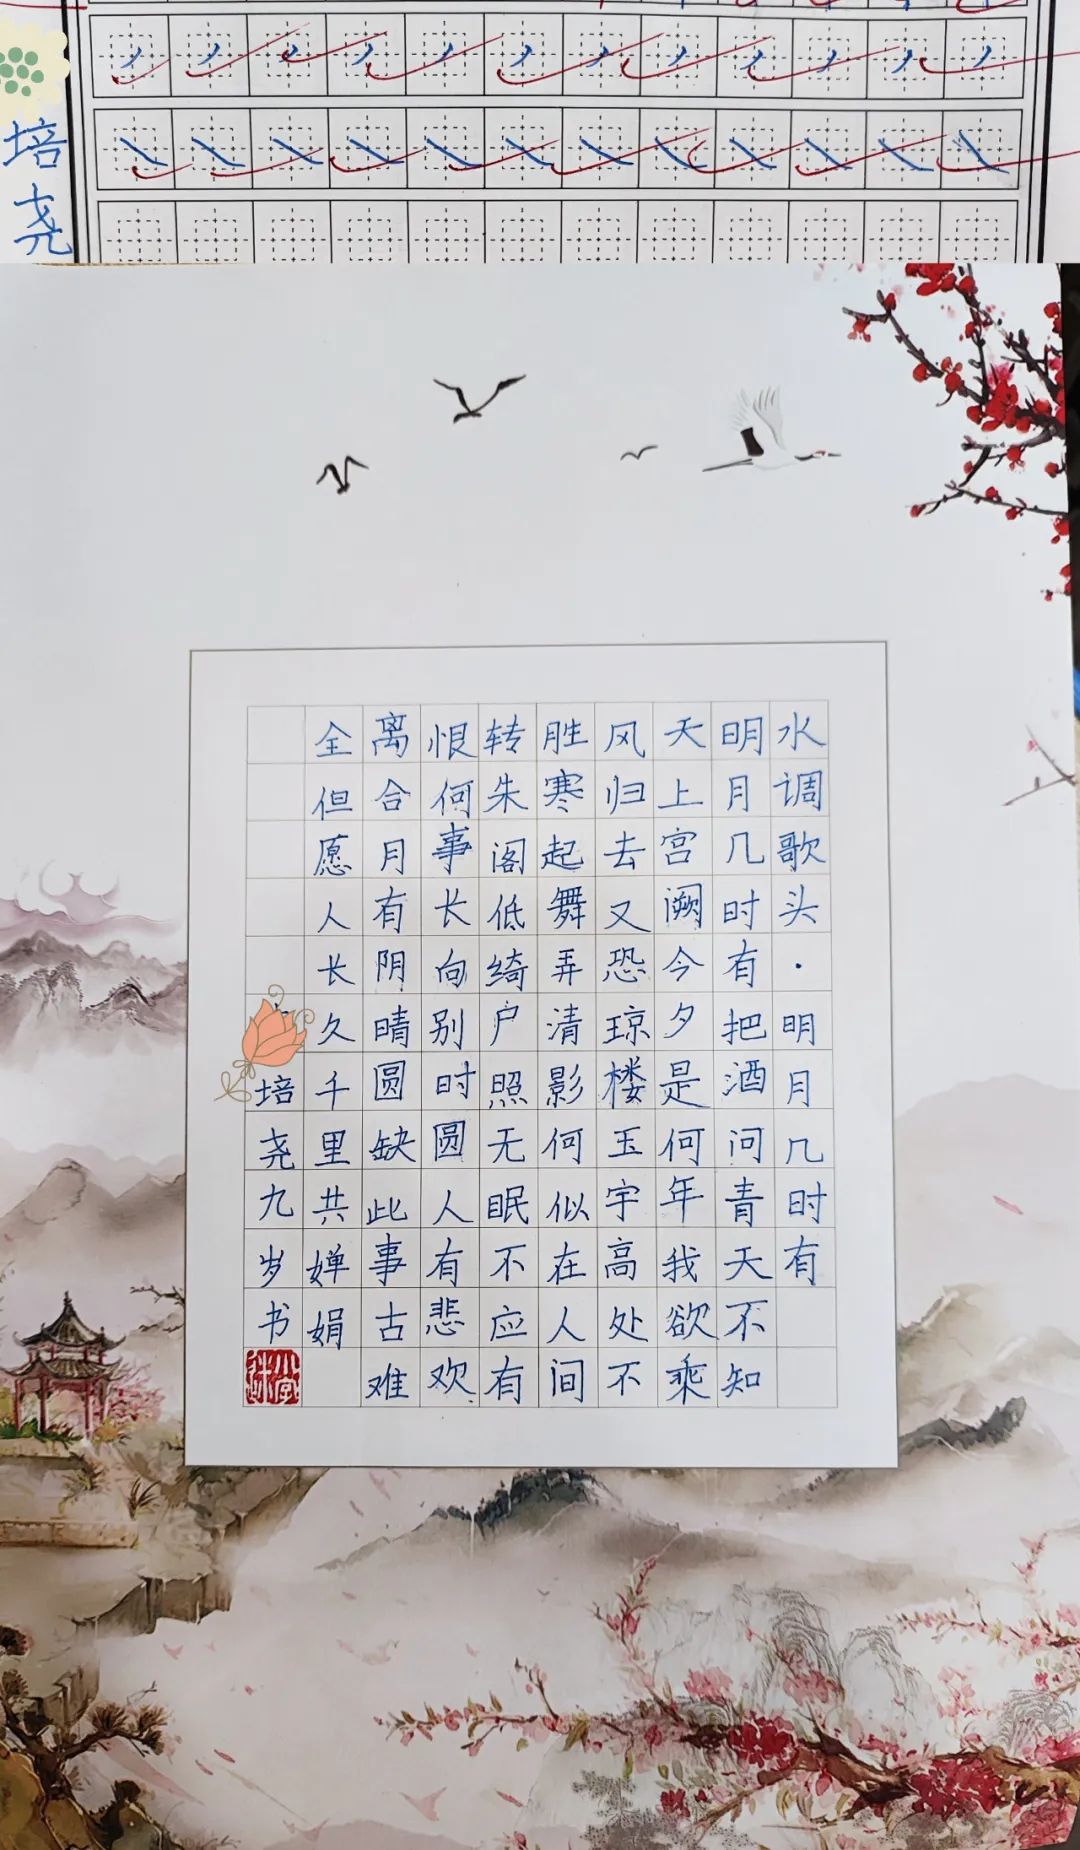 培尧
水调歌头·明月几时有
明月几时有把酒问青天不知
天上宫阙今夕是何年我欲乘
风归去又恐琼楼玉宇高处不
胜寒起舞弄清影何似在人间
转朱阁低绮户照无眠不应有
恨何事长向别时圆人有悲欢
离合月有阴晴圆缺此事古难
全但愿人长久千里共婵娟
培尧九岁书